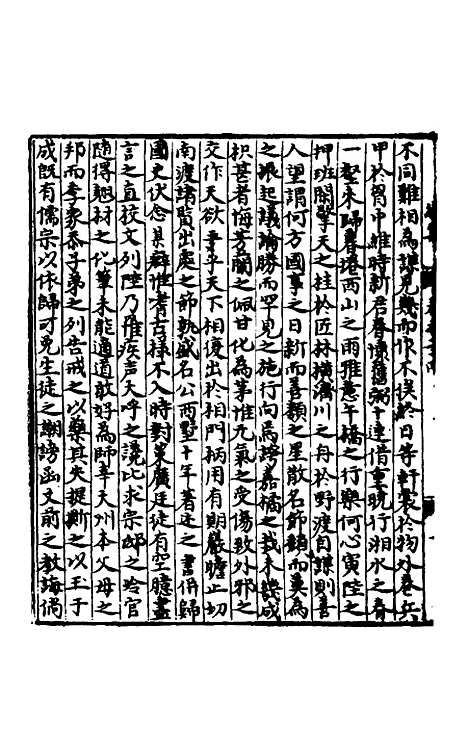 不同難相為謀見幾而作不俟於日等軒裳於物外卷兵
甲於胷中維時新君眷懷舊弼十連借重晥行湘水之春
一壑未歸暮捲西山之雨雅意午橋之行樂何心寅陛之
押班閣擎天之柱於匠林橫濟川之舟於野渡自謀則善
人望謂何方國事之日新而善類之星散名節頹而莫為
之振起議論勝而罕見之施行向為誇嘉橘之栽未幾成
枳甚者悔芳蘭之佩甘化為茅惟元氣之受傷致外邪之
交作天欲平乎天下相復出於相門柄用有期嚴瞻止切
南渡諸賢出處之節孰盛名公西墅十年著述之書併歸
國史伏念某癖惟嗜古樣不入時對策廣廷徒有空臆盡
言之直校文列陛乃罹疾聲大呼之譏比求宗邸之冷官
隨得翹材之化筆未能適道敢好為師幸天州本父母之
邦而李家忝子弟之列告戒之以藥其失提撕之以玉于
成既有儒宗以依歸可免生徒之嘲謗函丈前之教誨倘